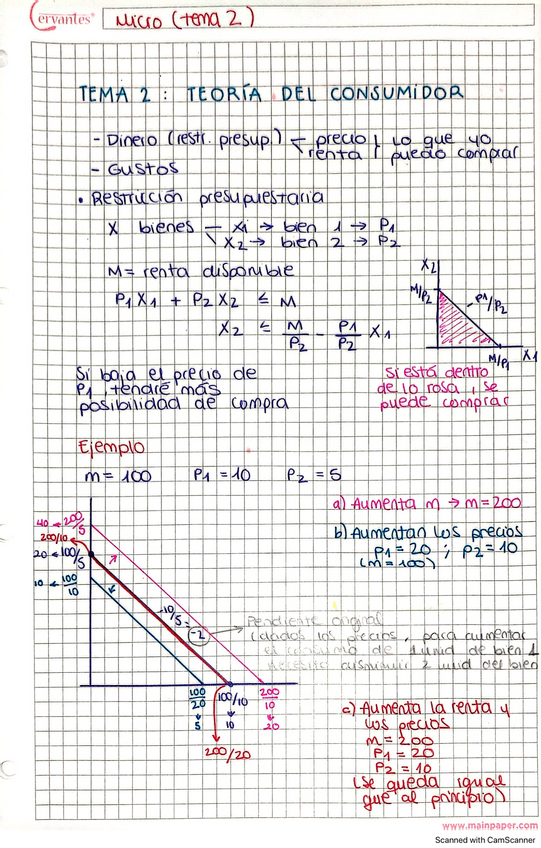 Cervantes®
Micro (tema 2)
TEMA 2 : TEORÍA DEL CONSUMIDOR
- Dinero (restr. presup.) precio lo que yo
renta puedo comprar
- Gustos
• Restricción presupuestaria
X bienes — X1 → bien 1 → P1
X2 → bien 2 → P2
M = renta disponible
P1 X1 + P2 X2 ≤ M
X2 ≤ M/P2 - P1/P2 X1
X2
M/P2
-P1/P2
M/P1
X1
Si baja el precio de
P1, tendré más
posibilidad de compra
Si está dentro
de lo rosa, se
puede comprar
Ejemplo
m = 100 P1 = 10 P2 = 5
a) Aumenta m → m = 200
b) Aumentan los precios
P1 = 20 ; P2 = 10
(m = 100)
40 ← 200/5
200/10
20 ← 100/5
10 ← 100/10
-10/5 = -2
Pendiente original
(dados los precios, para aumentar
el consumo de 1 unid de bien 1
necesito disminuir 2 unid del bien
100/20 → 5
100/10 → 10
200/10 → 20
200/20
c) Aumenta la renta y
los precios
m = 200
P1 = 20
P2 = 10
(se queda igual
que al principio)
www.mainpaper.com
Scanned with CamScanner